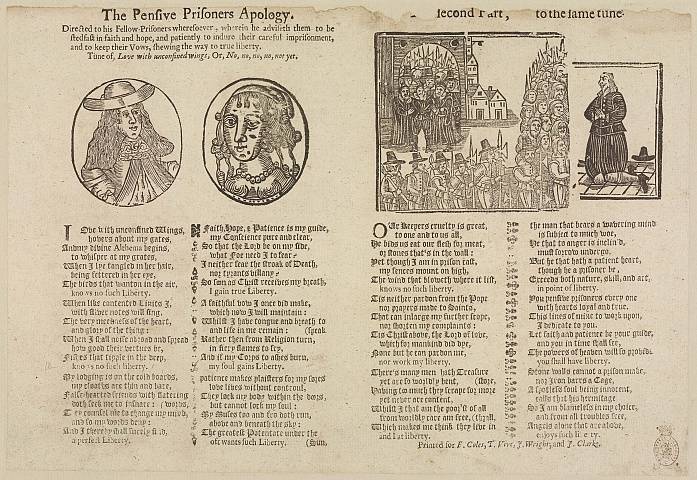 The Pensive Prisoners Apology.
Directed to his Fellow-Prisoners wheresoever, wherein he adviseth them to be
stedfast in faith and hope, and patiently to indure their careful imprisonment,
and to keep their Vows, shewing the way to true liberty.
Tune of, Love with unconfined wings, Or, No, no, no, no, not yet,
LOve with unconfined Wings,
hovers about my gates,
And my divine Alehena begins,
to whisper at my grates,
When I lye tangled in her hair,
being fettered in her eye,
The birds that wanton in the air,
knows no such Liberty.
When like contented Linits I,
with silver notes will sing,
The very meekness of the heart,
and glory of the thing:
When I shall noise abroad and spread
how good their vertues be,
Fishes that tipple in the deep,
knows no such liberty.
My lodging is on the cold boards,
my cloaths are thin and bare,
False-hearted friends with flattering
both seek me to insnare: (words,
They counsel me to change my mind,
and so my words deny:
And I thereby shall surely find,
a perfect Liberty.
Faith, Hope, & Patience is my guide,
my Conscience pure and clear,
So that the Lord be on my side,
what foe need I to fear:
I neither fear the stroak of Death,
nor tyrants villany:
So soon as Christ receives my breath,
I gain true Liberty.
A faithful vow I once did make,
which now I will maintain:
Whilst I have tongue and breath to
and life in me remain: (speak
Rather then from Religion turn,
in fiery flames to fry,
And if my Corps to ashes burn,
my soul gains Liberty.
Patience makes plaisters for my sores
love lives without controul,
They lock my body within the dores,
but cannot lock my soul:
My Muses too and fro doth run,
above and beneath the sky:
The greatest Potentate under the
oft wants such Liberty. (Sun,
second Part, to the same tune.
OUr Keepers cruelty is great,
to one and to us all,
He bids us eat our flesh for meat,
or stones that's in the wall:
Yet though I am in prison cast,
my sences mount on high,
The wind that bloweth where it list,
knows no such liberty.
Tis neither pardon from the Pope
nor prayers made to Saints,
That can inlarge my further scope,
nor shorten my complaints:
Tis Christ above, the Lord of love,
which for mankind did dye,
None but he can pardon me,
nor work my liberty.
There's many men hath Treasure
yet are so worldly bent, (store,
Having to much they scrape for more
yet never are content.
Whilst that am the poor'd of all
from worldly care am free, (thrall,
Which makes me think they live in
and I at liberty.
the man that bears a wavering mind
is subject to much woe,
He that to anger is inclin'd,
must sorrow undergo.
But he that hath a patient heart,
though he a prisoner be,
Exceeds both nature, skill, and art,
in point of liberty.
You pensive prisoners every one
with hearts loyal and true.
This lines of mine to work upon,
I dedicate to you.
Let faith and patience be your guide,
and you in time shall see,
The powers of heaven will so provide
you shall have liberty.
Stone walls cannot a prison make,
nor Iron bars a Cage,
A spotless soul being innocent,
calls that his hermitage
So I am blameless in my choice,
and from all troubles free,
Angels alone that are above,
enjoys such liberty.
Printed for F. Coles, T. Vere, J. Wright, and J. Clark.